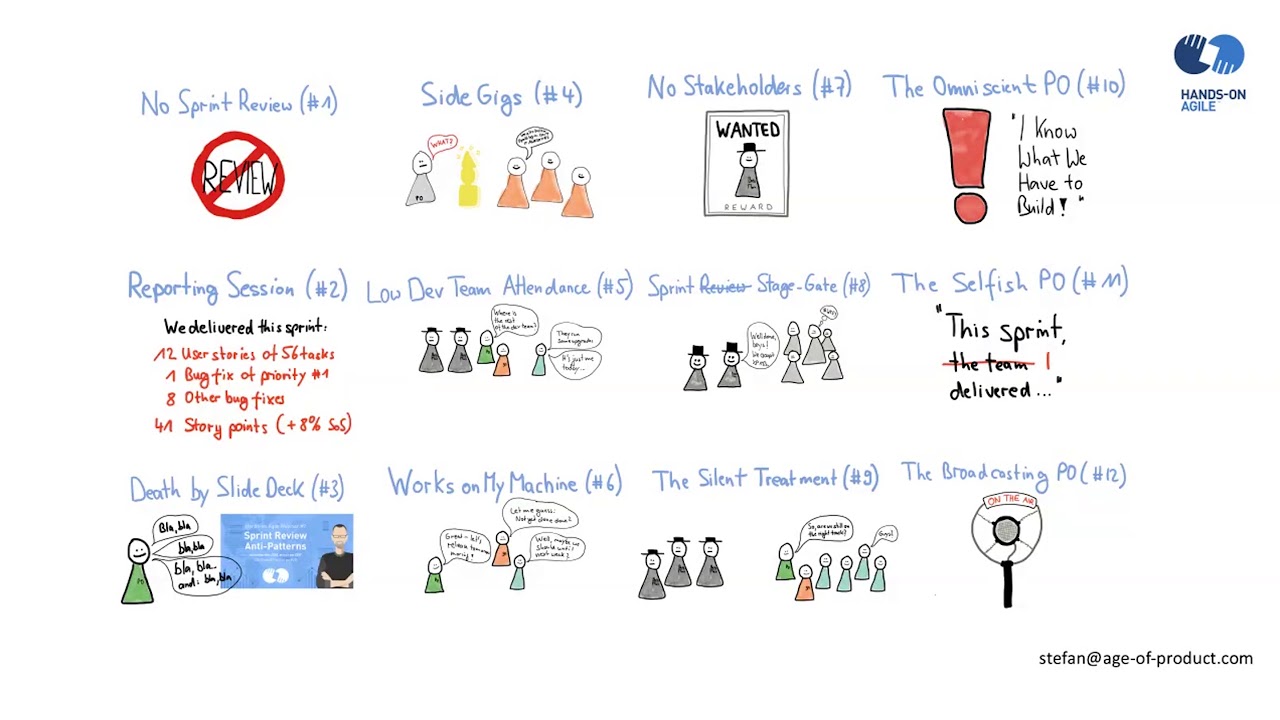 HANDS-ON
AGILE
No Sprint Review (#1)
REVIEW
Side Gigs (#4)
WHAT?
PO
No Stakeholders (#7)
WANTED
REWARD
The Omniscient PO (#10)
"I Know
What We
Have to
Build! "
Reporting Session (#2)
We delivered this sprint:
12 User stories of 56 tasks
1 Bug fix of priority #1
8 Other bug fixes
41 Story points (+8% SoS)
Low Dev Team Attendance (#5)
Where is
the rest
of the dev team?
They run
some upgrades
It's just me
today...
Sprint Review Stage-Gate (#8)
Well done,
boys!
We accept
The Selfish PO (#11)
"This sprint,
the team I
delivered..."
Death by Slide Deck (#3)
Bla, bla
bla, bla
bla, bla..
and: bla, bla
PO
Sprint Review
Anti-Patterns
Works on My Machine (#6)
Let me guess:
Not yet done done?
Great – let's
release tomorrow
morning!
Well, maybe we
should wait until
next week?
The Silent Treatment (#9)
So, are we still on
the right track?
Guys?
The Broadcasting PO (#12)
ON THE AIR
stefan@age-of-product.com